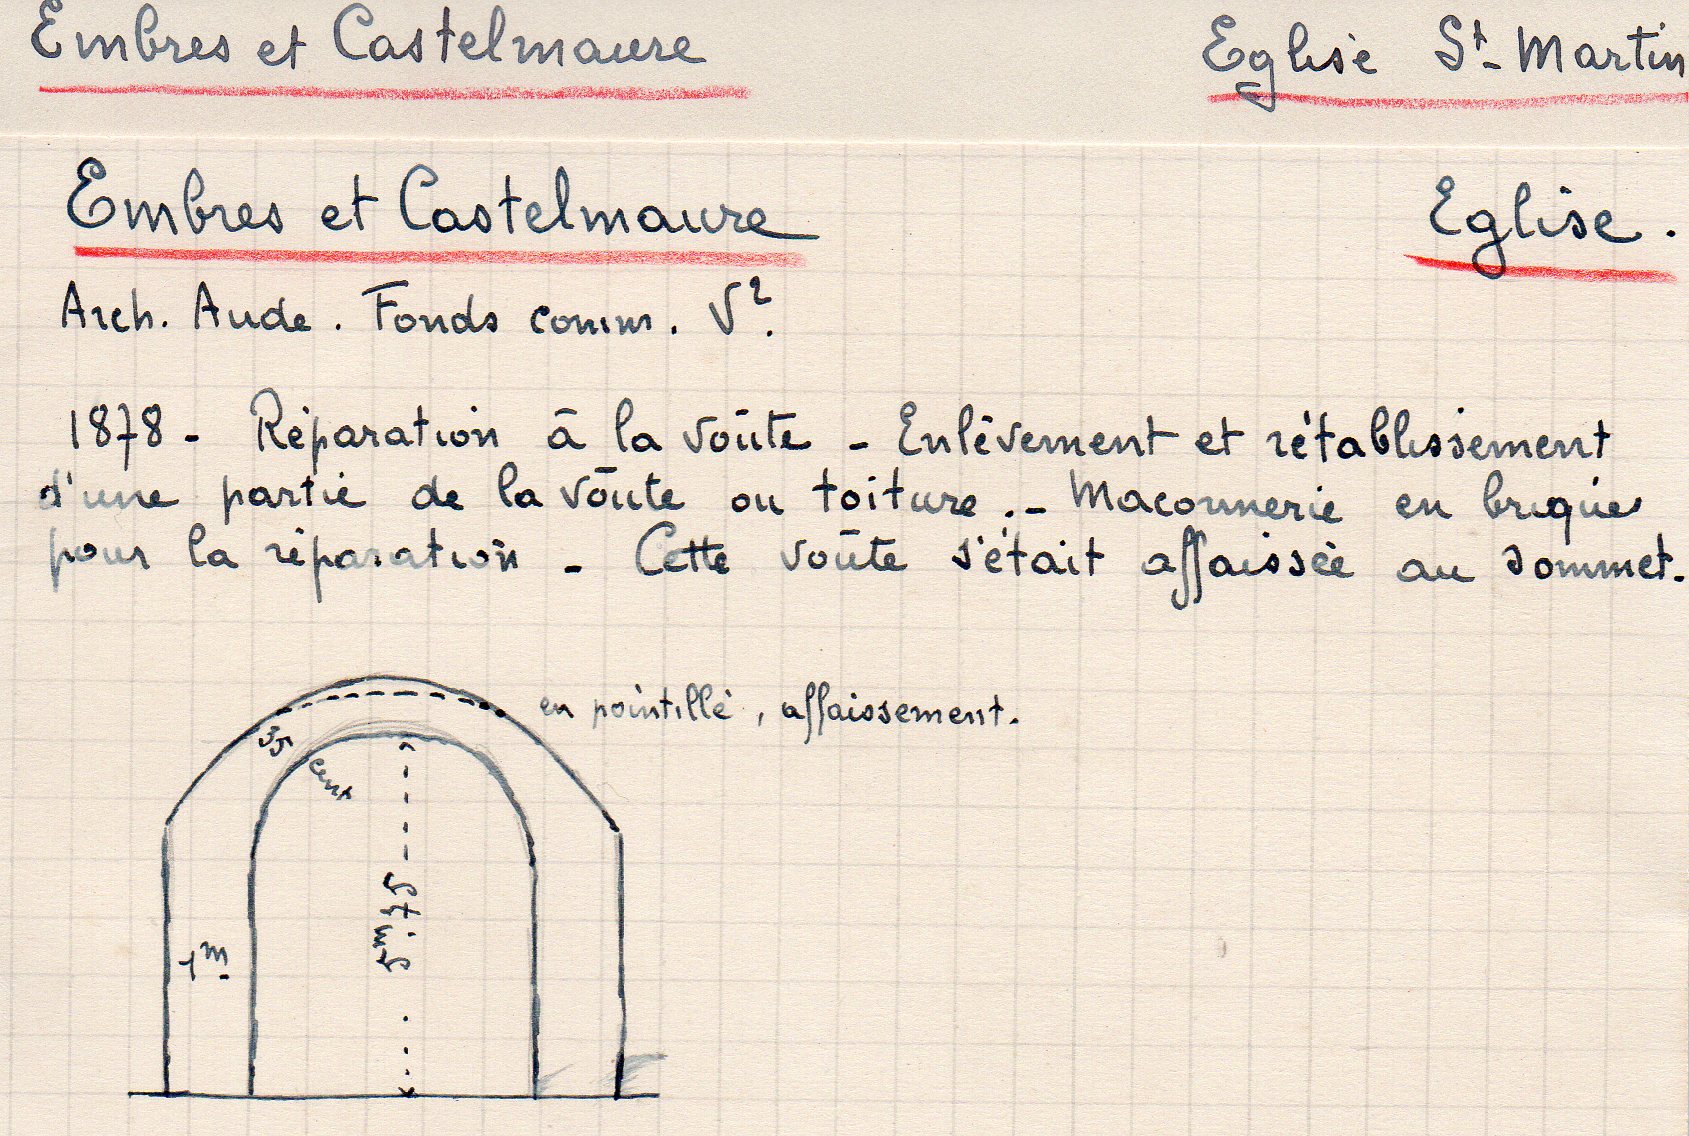 Embres et Castelmaure Eglise St-Martin
Embres et Castelmaure Eglise.
Arch. Aude. Fonds comm. V².
1878 - Réparation à la voûte - Enlèvement et rétablissement
d'une partie de la voûte ou toiture.- Maconnerie en brique
pour la réparation - Cette voûte s'était affaissée au sommet.
en pointillé, affaissement.
35 cent
5m.75
1m